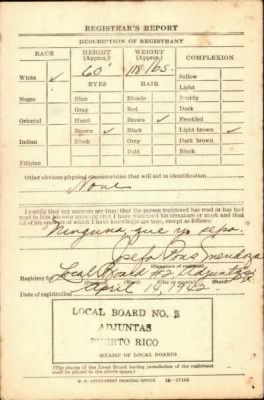 REGISTRAR'S REPORT
DESCRIPTION OF REGISTRANT
RACE HEIGHT (Approx.) WEIGHT (Approx.) COMPLEXION
White ✓ 60" 165 Sallow
EYES HAIR Light
Negro Blue Blonde Ruddy
Gray Red Dark
Oriental Hazel Brown ✓ Freckled
Brown ✓ Black Light brown ✓
Indian Black Gray Dark brown
Bald Black
Filipino
Other obvious physical characteristics that will aid in identification
None
I certify that my answers are true; that the person registered has read or has had
read to him his own answers; that I have witnessed his signature or mark and that
all of his answers of which I have knowledge are true, except as follows:
Ninguna que yo sepa.
Josefa Pons Mendoza
(Signature of registrar)
Registrar for Local Board for Adjuntas
(Number) (City or county) (State)
Date of registration April 14, 1942
LOCAL BOARD NO.
ADJUNTAS
PUERTO RICO
STAMP OF LOCAL BOARDS
(The stamp of the Local Board having jurisdiction of the registrant
shall be placed in the above space.)
U. S. GOVERNMENT PRINTING OFFICE